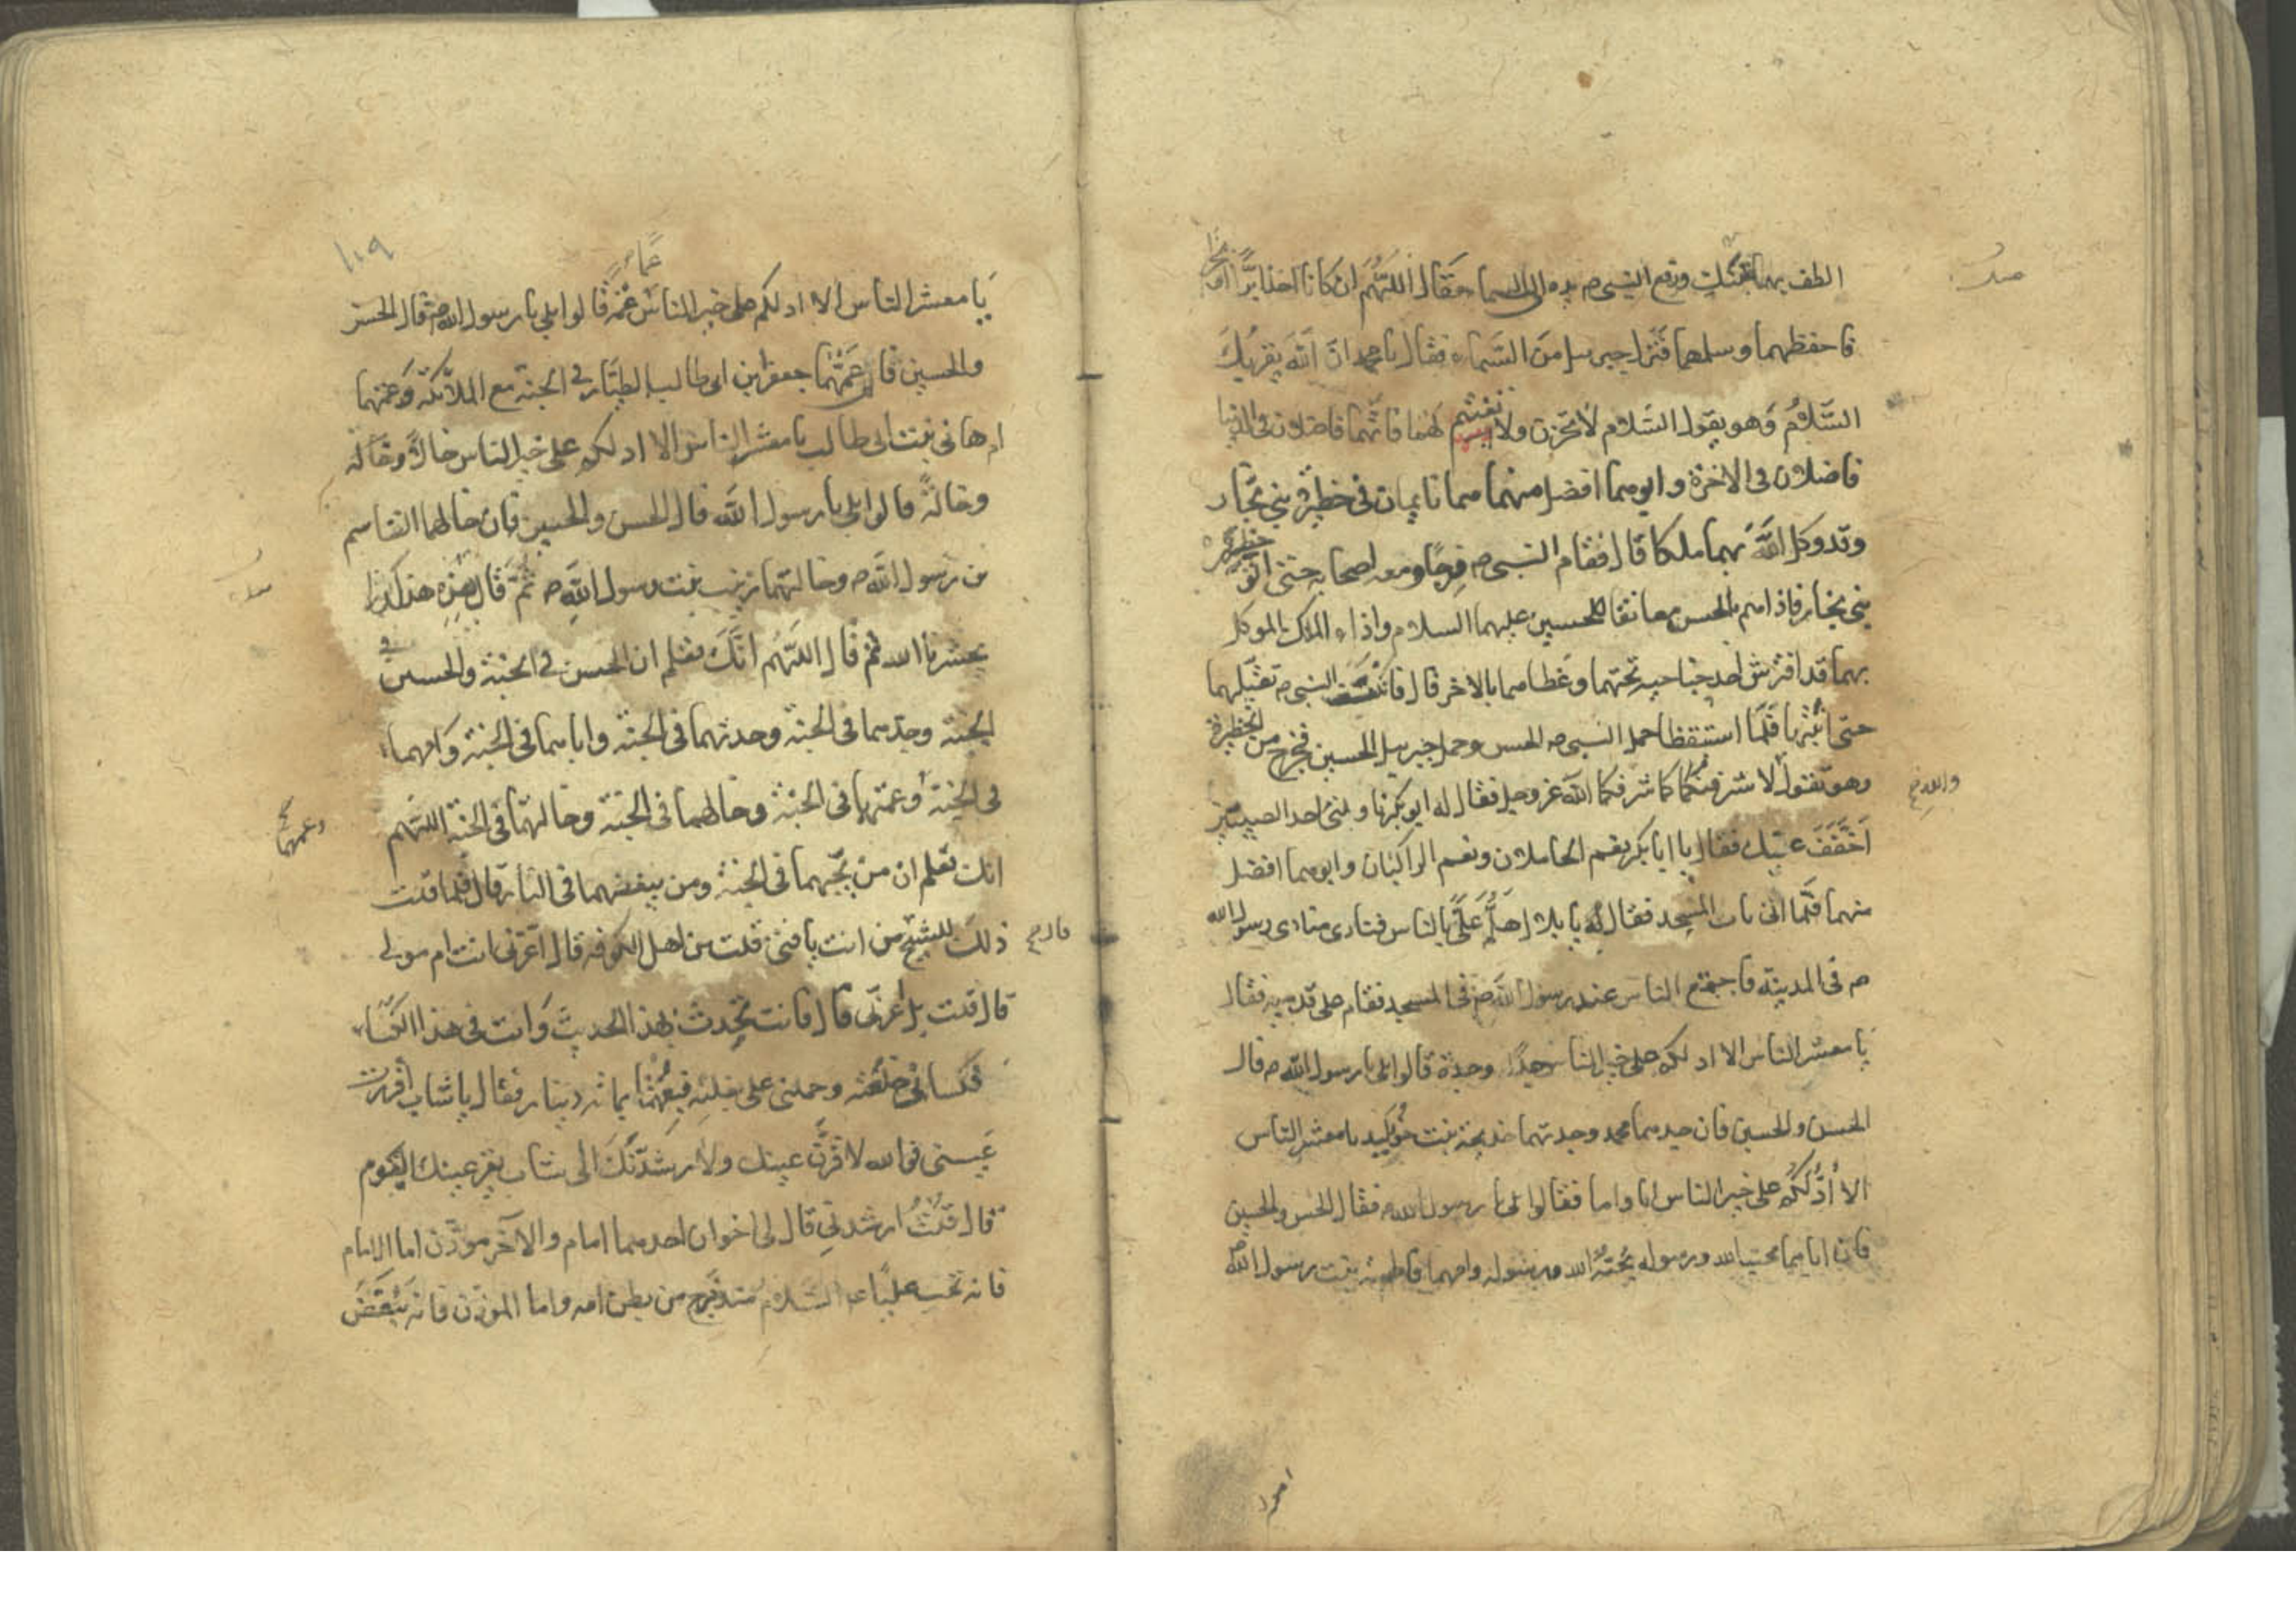 الطف بهما منك ورفع النبي ص يده الى السماء فقال اللهم ان كانا اخذا برا او بحرا
فاحفظهما وسلمهما فنزل جبرييل من السماء فقال يا محمد ان الله يقريك
السلام وهو يقول السلام لا تحزن ولا تغتم لهما فانهما فاضلان في الدنيا
فاضلان فى الاخرة وابوهما افضل منهما هما نايمان فى حظيرة بني نجار
وقد وكل الله بهما ملكا قال فقام النبي ص فرحا ومعه اصحابه حتى اتوا حظيرة
بني نجار فاذا هم بالحسن معانقا للحسين عليهما السلام واذا الملك الموكل
بهما قد افترش احد جناحيه تحتهما وغطاهما بالاخر قال فانكب النبي ص يقبلهما
حتى انتبها فلما استيقظا حمل النبي ص الحسن وحمل جبرييل الحسين فخرج من الحظيرة
وهو يقول لاشرفنكما كما شرفكما الله عز وجل فقال له ابو بكر ناولني احد الصبيين
والله خ
اخفف عنك فقال يا ابا بكر نعم الحاملان ونعم الراكبان وابوهما افضل
منهما فلما اتى باب المسجد فقال يا بلال هلم على بالناس فنادى منادى رسول الله
ص فى المدينة فاجتمع الناس عند رسول الله ص فى المسجد فقام على قدميه فقال
يا معشر الناس الا ادلكم على خير الناس جدا وجدة قالوا بلى يا رسول الله ص قال
الحسن والحسين فان جدهما محمد وجدتهما خديجة بنت خويلد يا معشر الناس
الا ادلكم على خير الناس ابا واما فقالوا بلى يا رسول الله فقال الحسن والحسين
فان اباهما يحب الله ورسوله يحبه الله ورسوله وامهما فاطمة بنت رسول الله
١٠٩
يا معشر الناس الا ادلكم على خير الناس عما وعمة قالوا بلى يا رسول الله ص قال الحسن
والحسين فان عمهما جعفر ابن ابى طالب الطيار في الجنة مع الملائكة وعمتهما
ام هانى بنت ابى طالب يا معشر الناس الا ادلكم على خير الناس خالا وخالة
وخالة قالوا بلى يا رسول الله قال الحسن والحسين فان خالهما القاسم
بن رسول الله ص وخالتهما زينب بنت رسول الله ص ثم قال بيده هكذا
يحشرنا الله ثم قال اللهم انك تعلم ان الحسن في الجنة والحسين في
الجنة وجدهما فى الجنة وجدتهما فى الجنة واباهما فى الجنة وامهما
فى الجنة وعمتهما فى الجنة وخالهما فى الجنة وخالتهما فى الجنة اللهم
وعمهما
انك تعلم ان من يحبهما فى الجنة ومن يبغضهما فى النار قال فلما قلت
ذلك للشيخ من انت يا فتى قلت من اهل الكوفه قال اعربى انت ام مولى
قال خ
قال قلت بل عربى قال فانت تحدث بهذا الحديث وانت فى هذا الكساء
فكسانى خلعته وحملنى على بغلته فبعتها بماثه دينار فقال يا شاب اقررت
عيني فوالله لاقرن عينك ولارشدنك الى شاب يقر عينك اليوم
قال قلت ارشدنى قال لى اخوان احدهما امام والآخر موذن اما الامام
فانه يحب عليا عليه السلام منذ خرج من بطن امه واما الموذن فانه يبغض